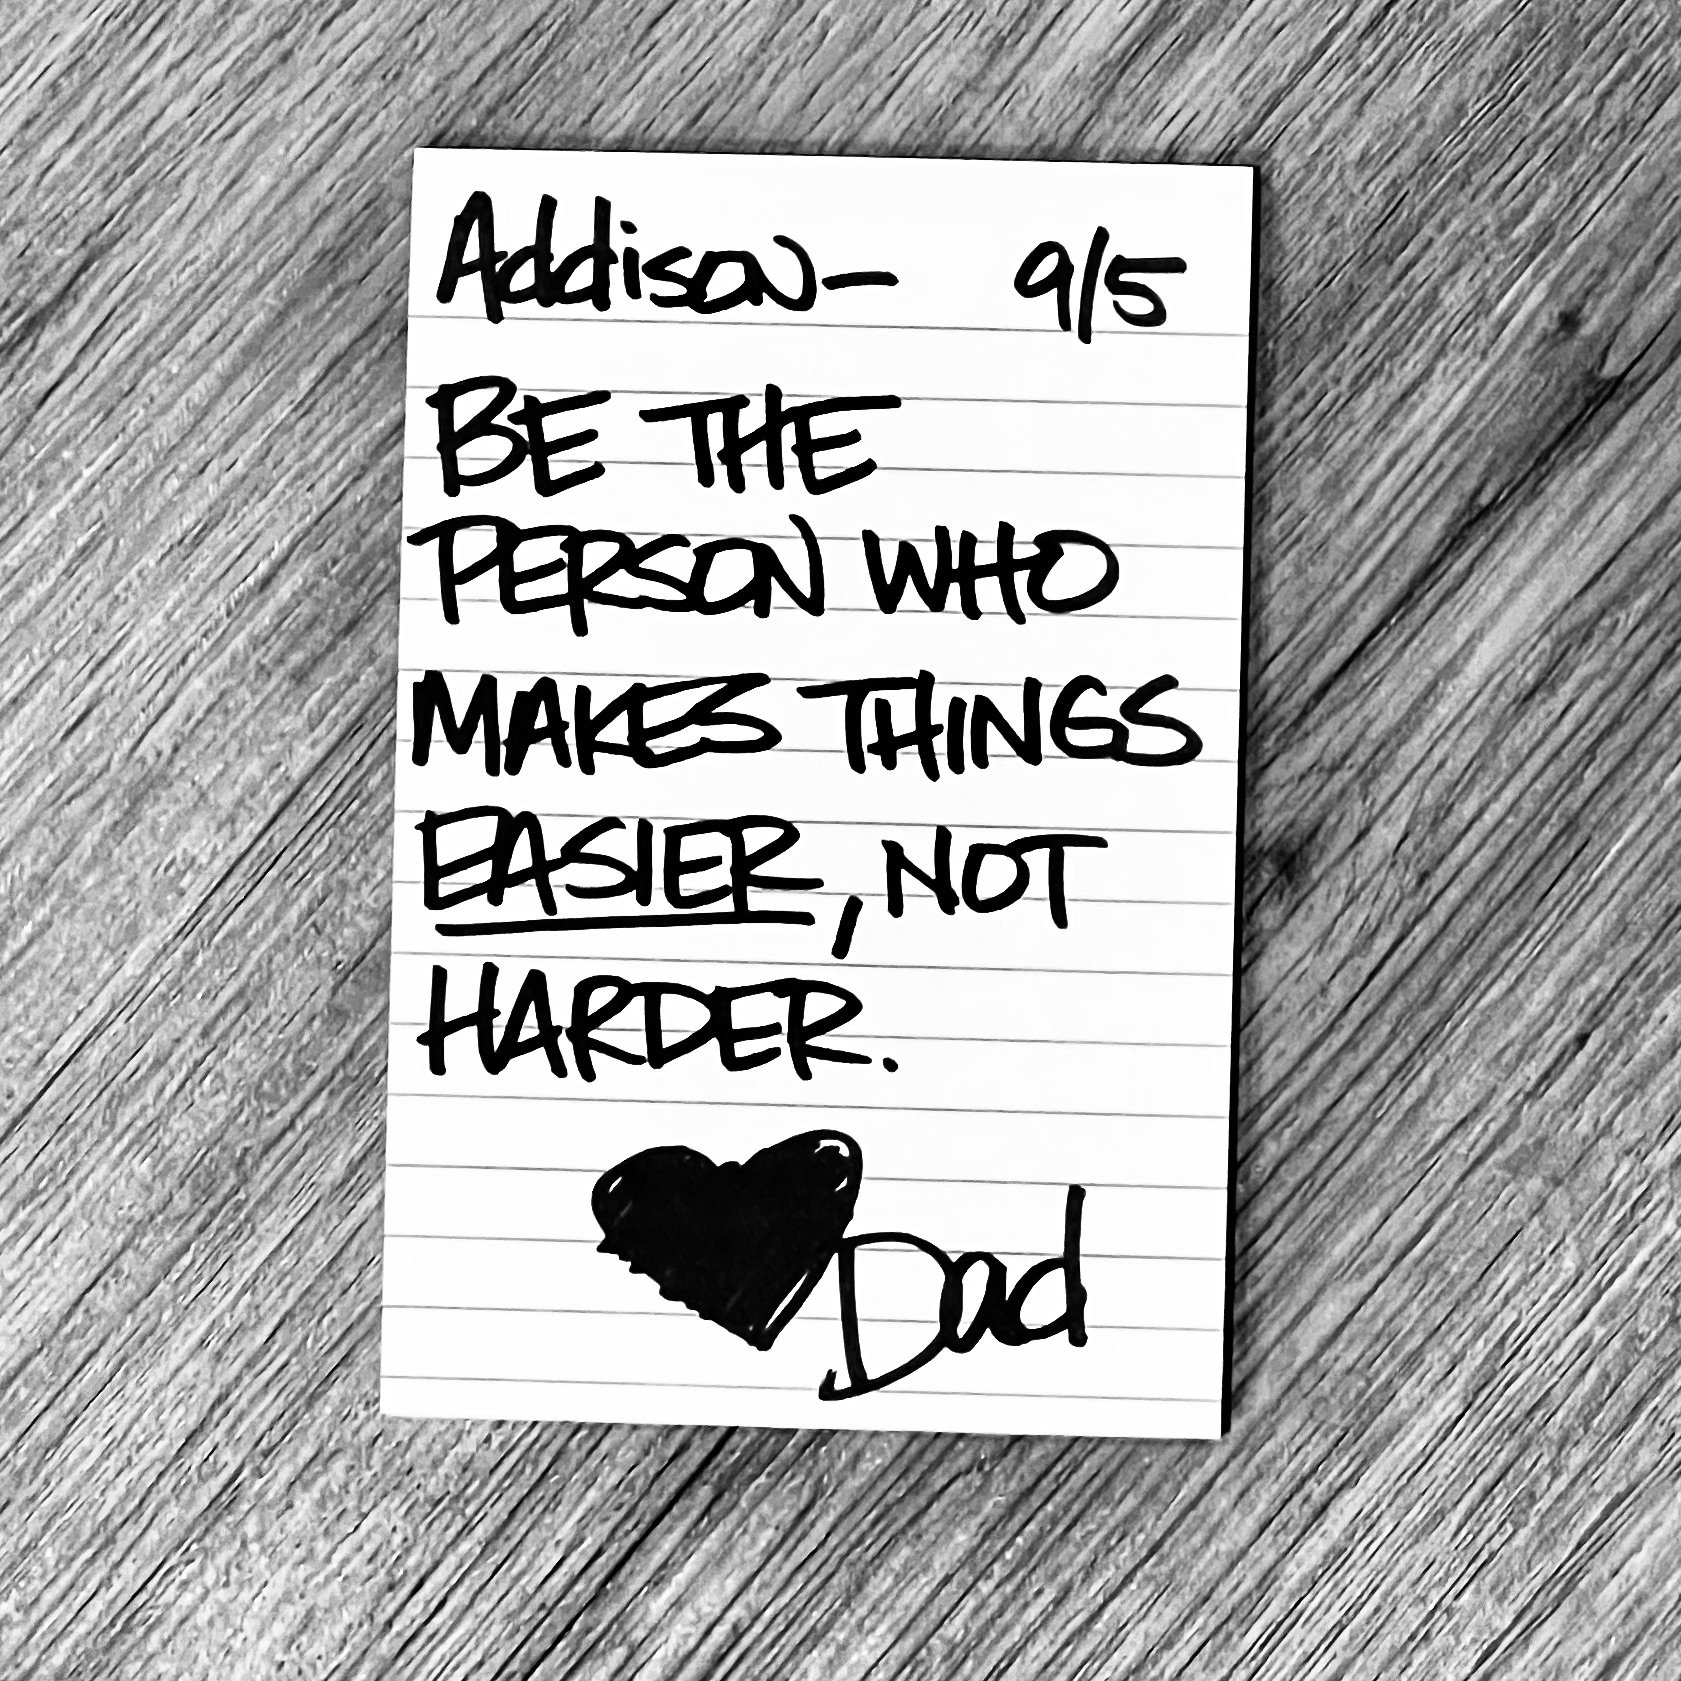 Addison— 9/5
BE THE
PERSON WHO
MAKES THINGS
EASIER, NOT
HARDER.
Dad